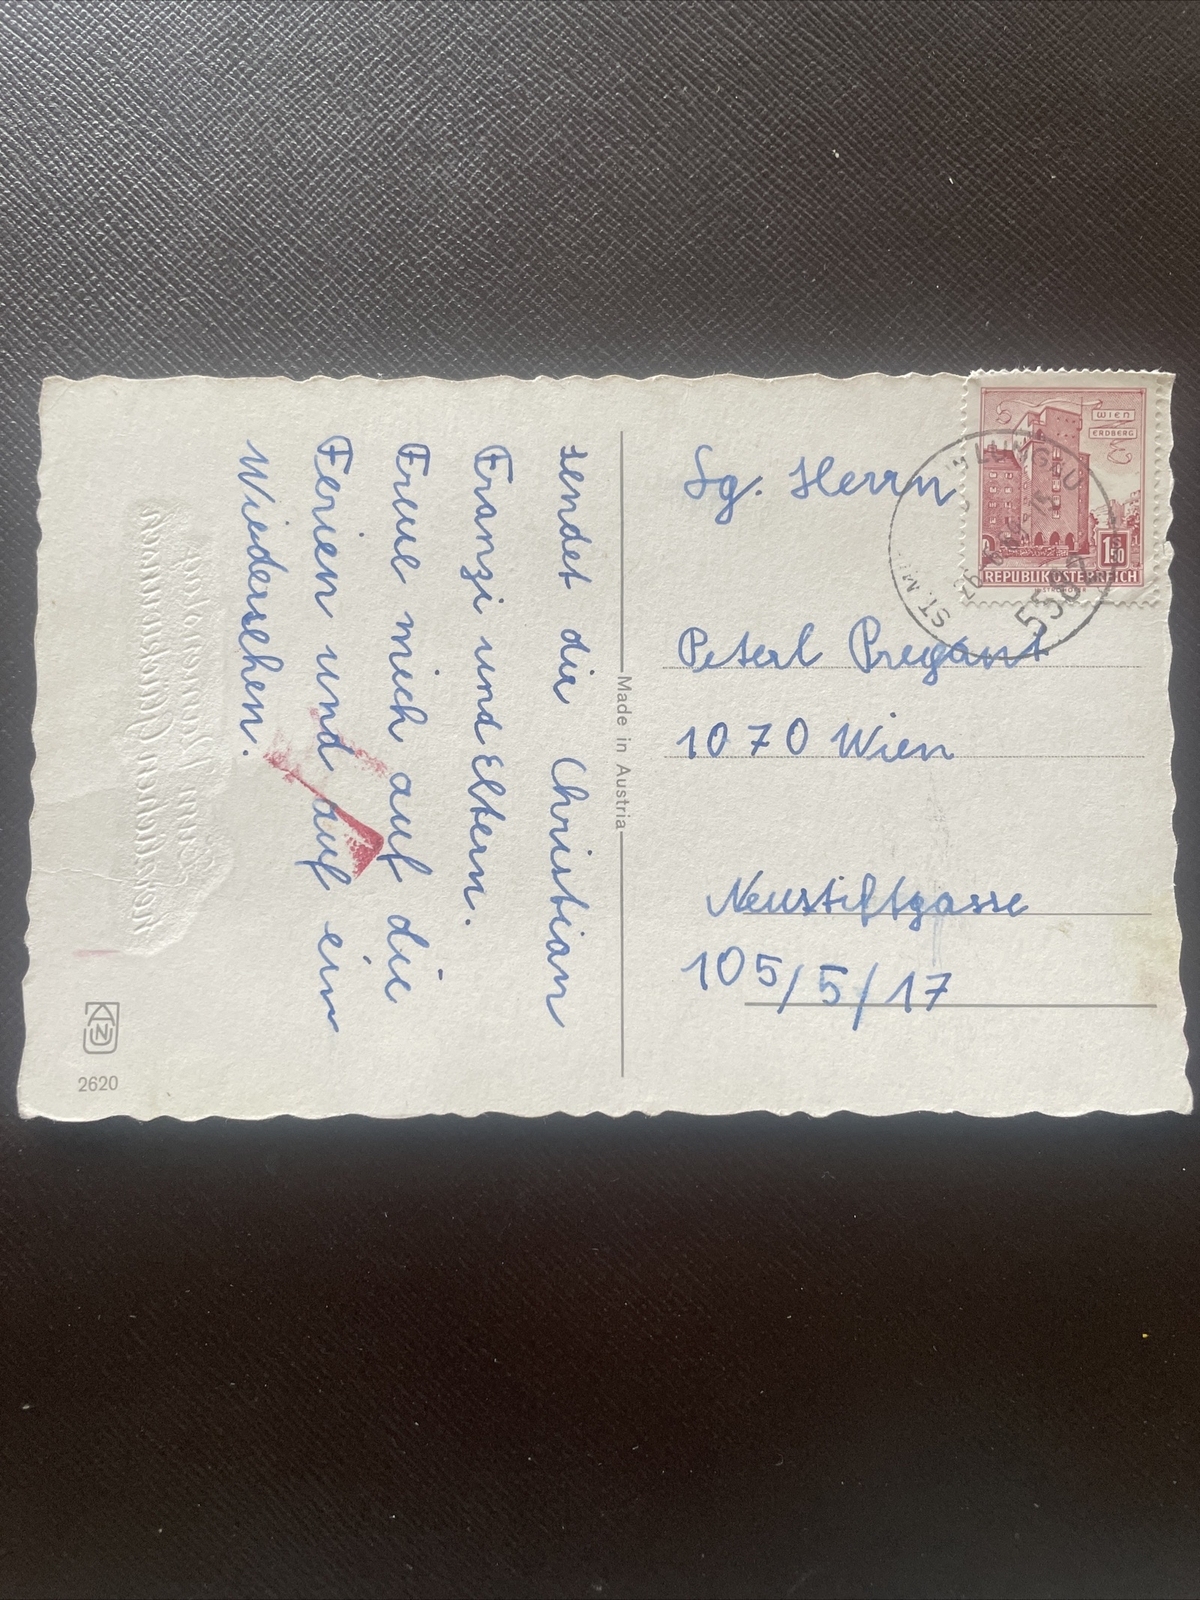 sendet dir Christian
Franzi und Eltern.
Freue mich auf die
Ferien und auf ein
Wiedersehen.
2620
Made in Austria
Sg. Herrn
Peterl Pregant
1070 Wien
Neustiftgasse
105/5/17
WIEN
ERDBERG
S1.50
REPUBLIK ÖSTERREICH
LUNGAU
5582